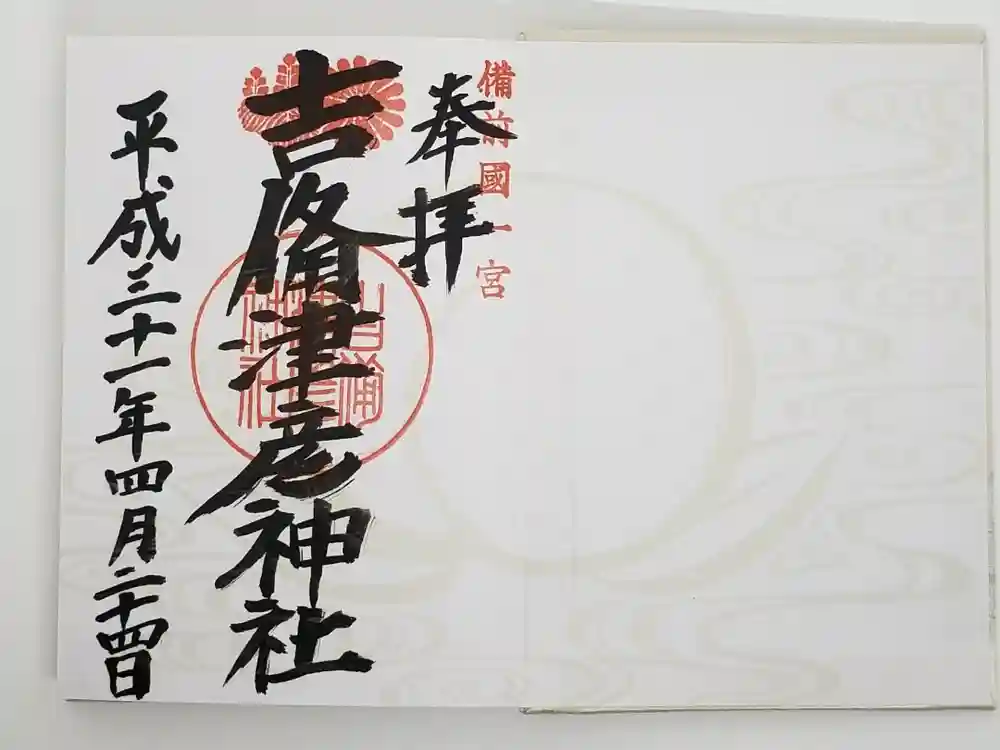 備前國一宮
奉拝
吉備津彦神社
吉備津彦神社
平成三十一年四月二十四日